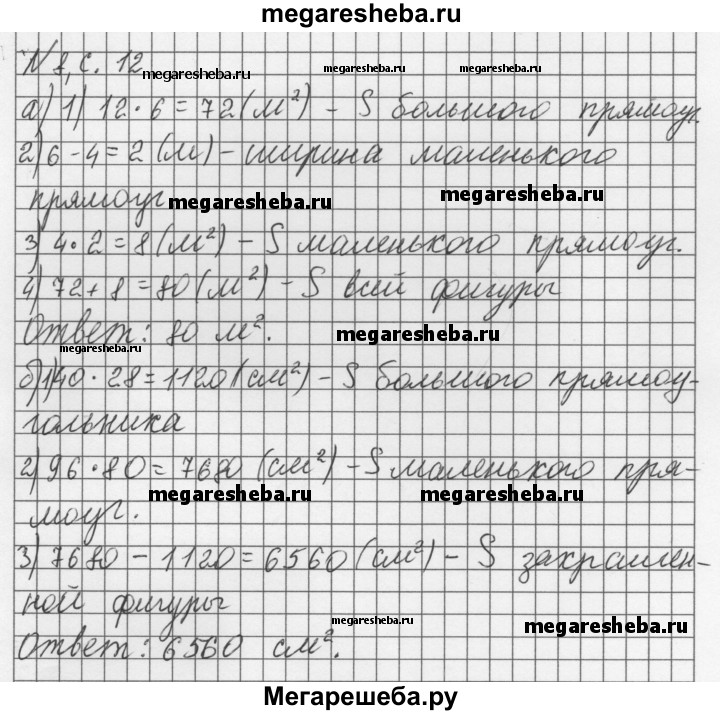 megaresheba.ru
N 8, с. 12 megaresheba.ru megaresheba.ru megaresheba.ru
а) 1) 12 · 6 = 72 (м²) – S большого прямоуг.
2) 6 - 4 = 2 (м) – ширина маленького
прямоуг megaresheba.ru megaresheba.ru
3) 4 · 2 = 8 (м²) – S маленького прямоуг.
4) 72 + 8 = 80 (м²) – S всей фигуры
Ответ: 80 м². megaresheba.ru
megaresheba.ru
б) 1) 40 · 28 = 1120 (см²) – S большого прямоу-
гольника
2) 96 · 80 = 7680 (см²) – S маленького пря-
megaresheba.ru megaresheba.ru
моуг.
3) 7680 – 1120 = 6560 (см²) – S закрашен-
ной фигуры megaresheba.ru megaresheba.ru
Ответ: 6560 см².
Мегарешеба.ру